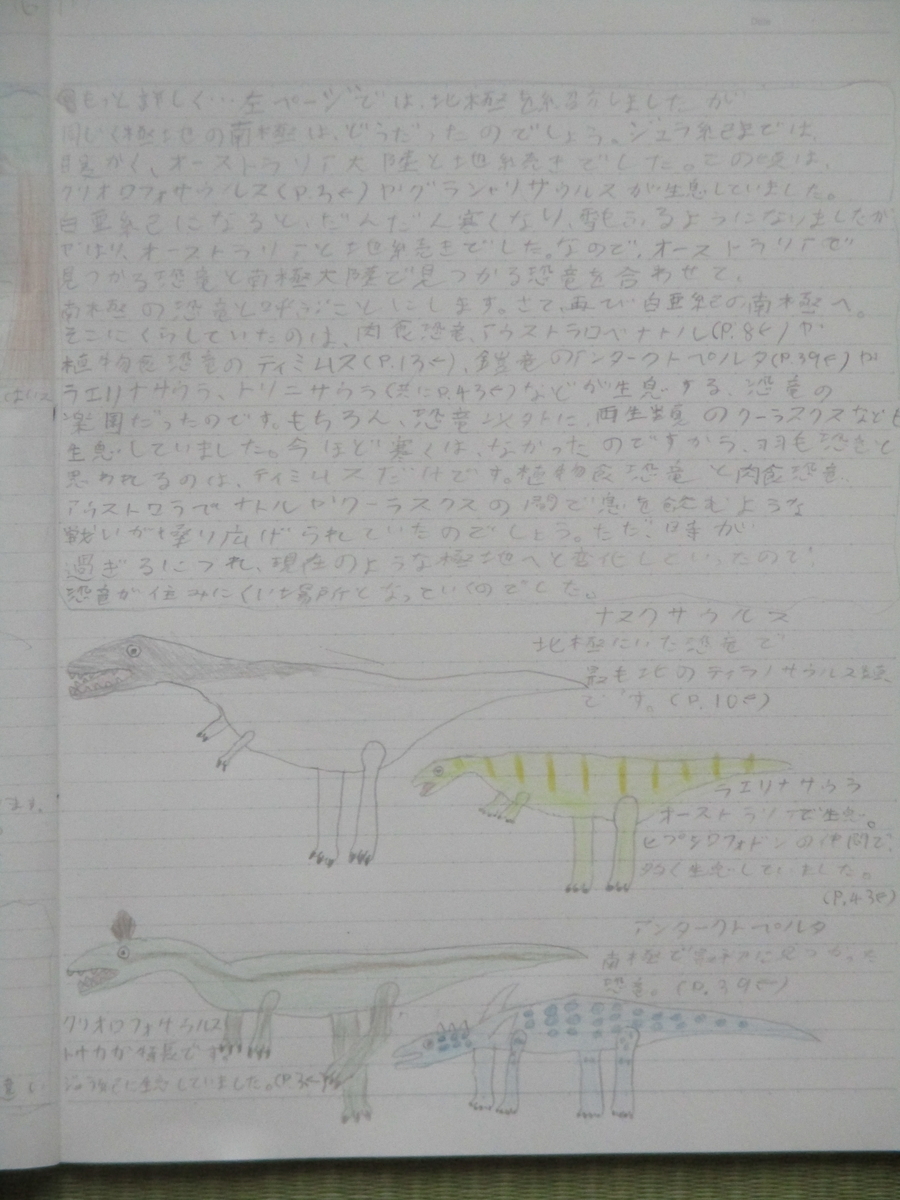 もっと詳しく…左ページでは、北極を紹介しましたが
同じく極地の南極は、どうだったのでしょう。ジュラ紀までは、
暖かく、オーストラリア大陸と地続きでした。この頃は、
クリオロフォサウルス(P.3e)やグラシャリサウルスが生息していました。
白亜紀になると、だんだん寒くなり、雪もふるようになりましたが
やはり、オーストラリアと地続きでした。なので、オーストラリアで
見つかる恐竜と南極大陸で見つかる恐竜を合わせて、
南極の恐竜と呼ぶことにします。さて、再び白亜紀の南極へ。
そこにくらしていたのは、肉食恐竜、アウストラロベナトル(P.8e)や
植物食恐竜のティミムス(P.13e)、鎧竜のアンタークトペルタ(P.39e)や
ラエリナサウラ、トリニサウラ(共にP.43e)などが生息する、恐竜の
楽園だったのです。もちろん、恐竜以外に、両生類のクーラスクスなども
生息していました。今ほど寒くは、なかったのですから、羽毛恐竜と
思われるのは、ティミムスだけです。植物食恐竜と肉食恐竜
アウストロラベナトルやクーラスクスの間で息を飲むような
戦いがくり広げられていたのでしょう。ただ、時が
過ぎるにつれ、現在のような極地へと変化していったので
恐竜が住みにくい場所となっていくのでした。
ナヌクサウルス
北極にいた恐竜で
最も北のティラノサウルス類
です。(P.10e)
ラエリナサウラ
オーストラリアで生息。
ヒプシロフォドンの仲間で、
多く生息していました。
(P.43e)
アンタークトペルタ
南極で最初に見つかった
恐竜。(P.39e)
クリオロフォサウルス
トサカが特長です。
ジュラ紀に生息していました。(P.3e)